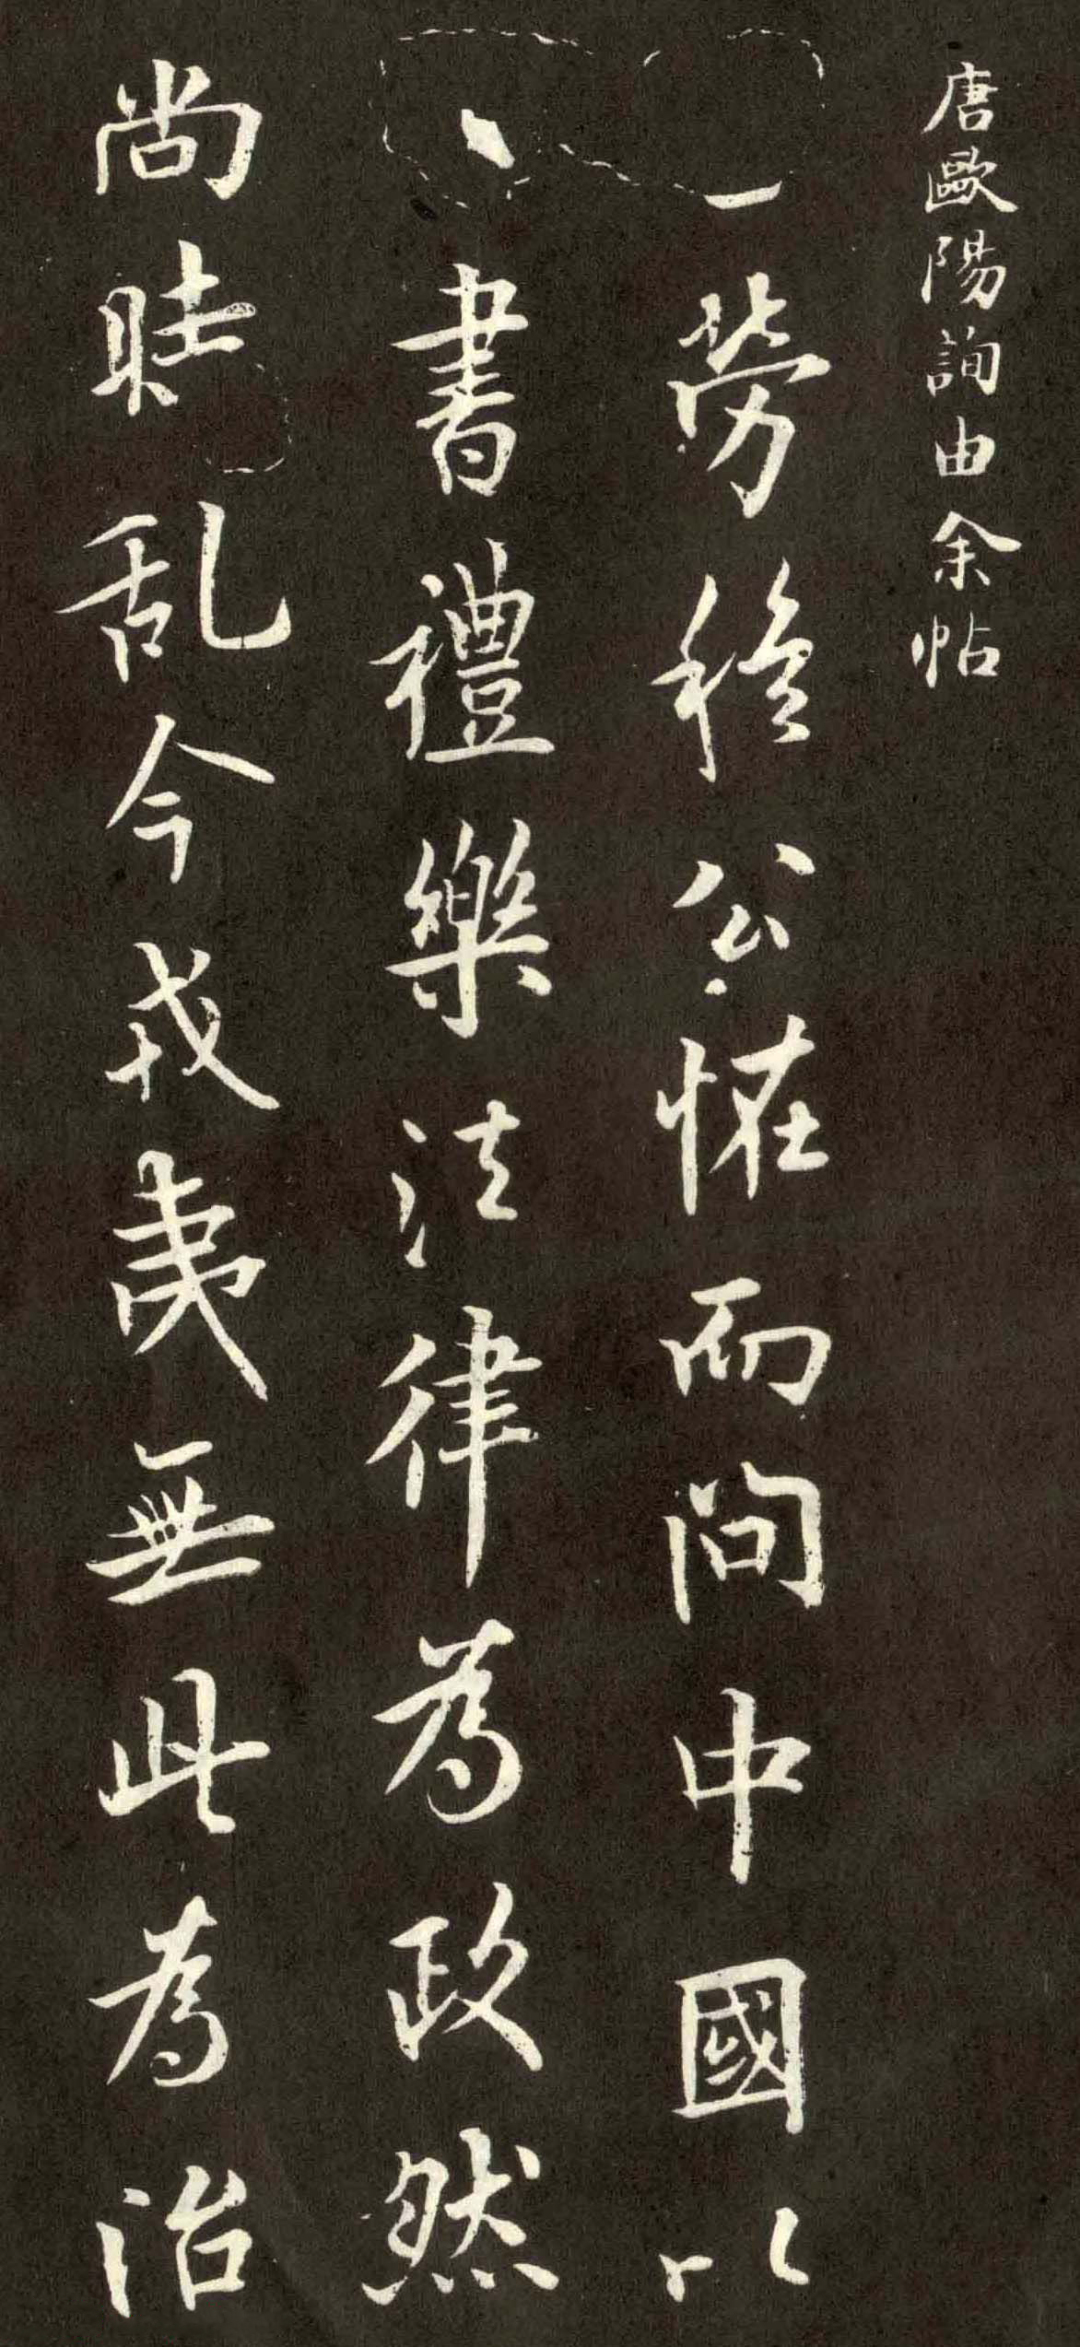 唐歐陽詢由余帖
勞穆公怪而問中國以
書禮樂法律為政然
尚時乱今戎夷無此為治